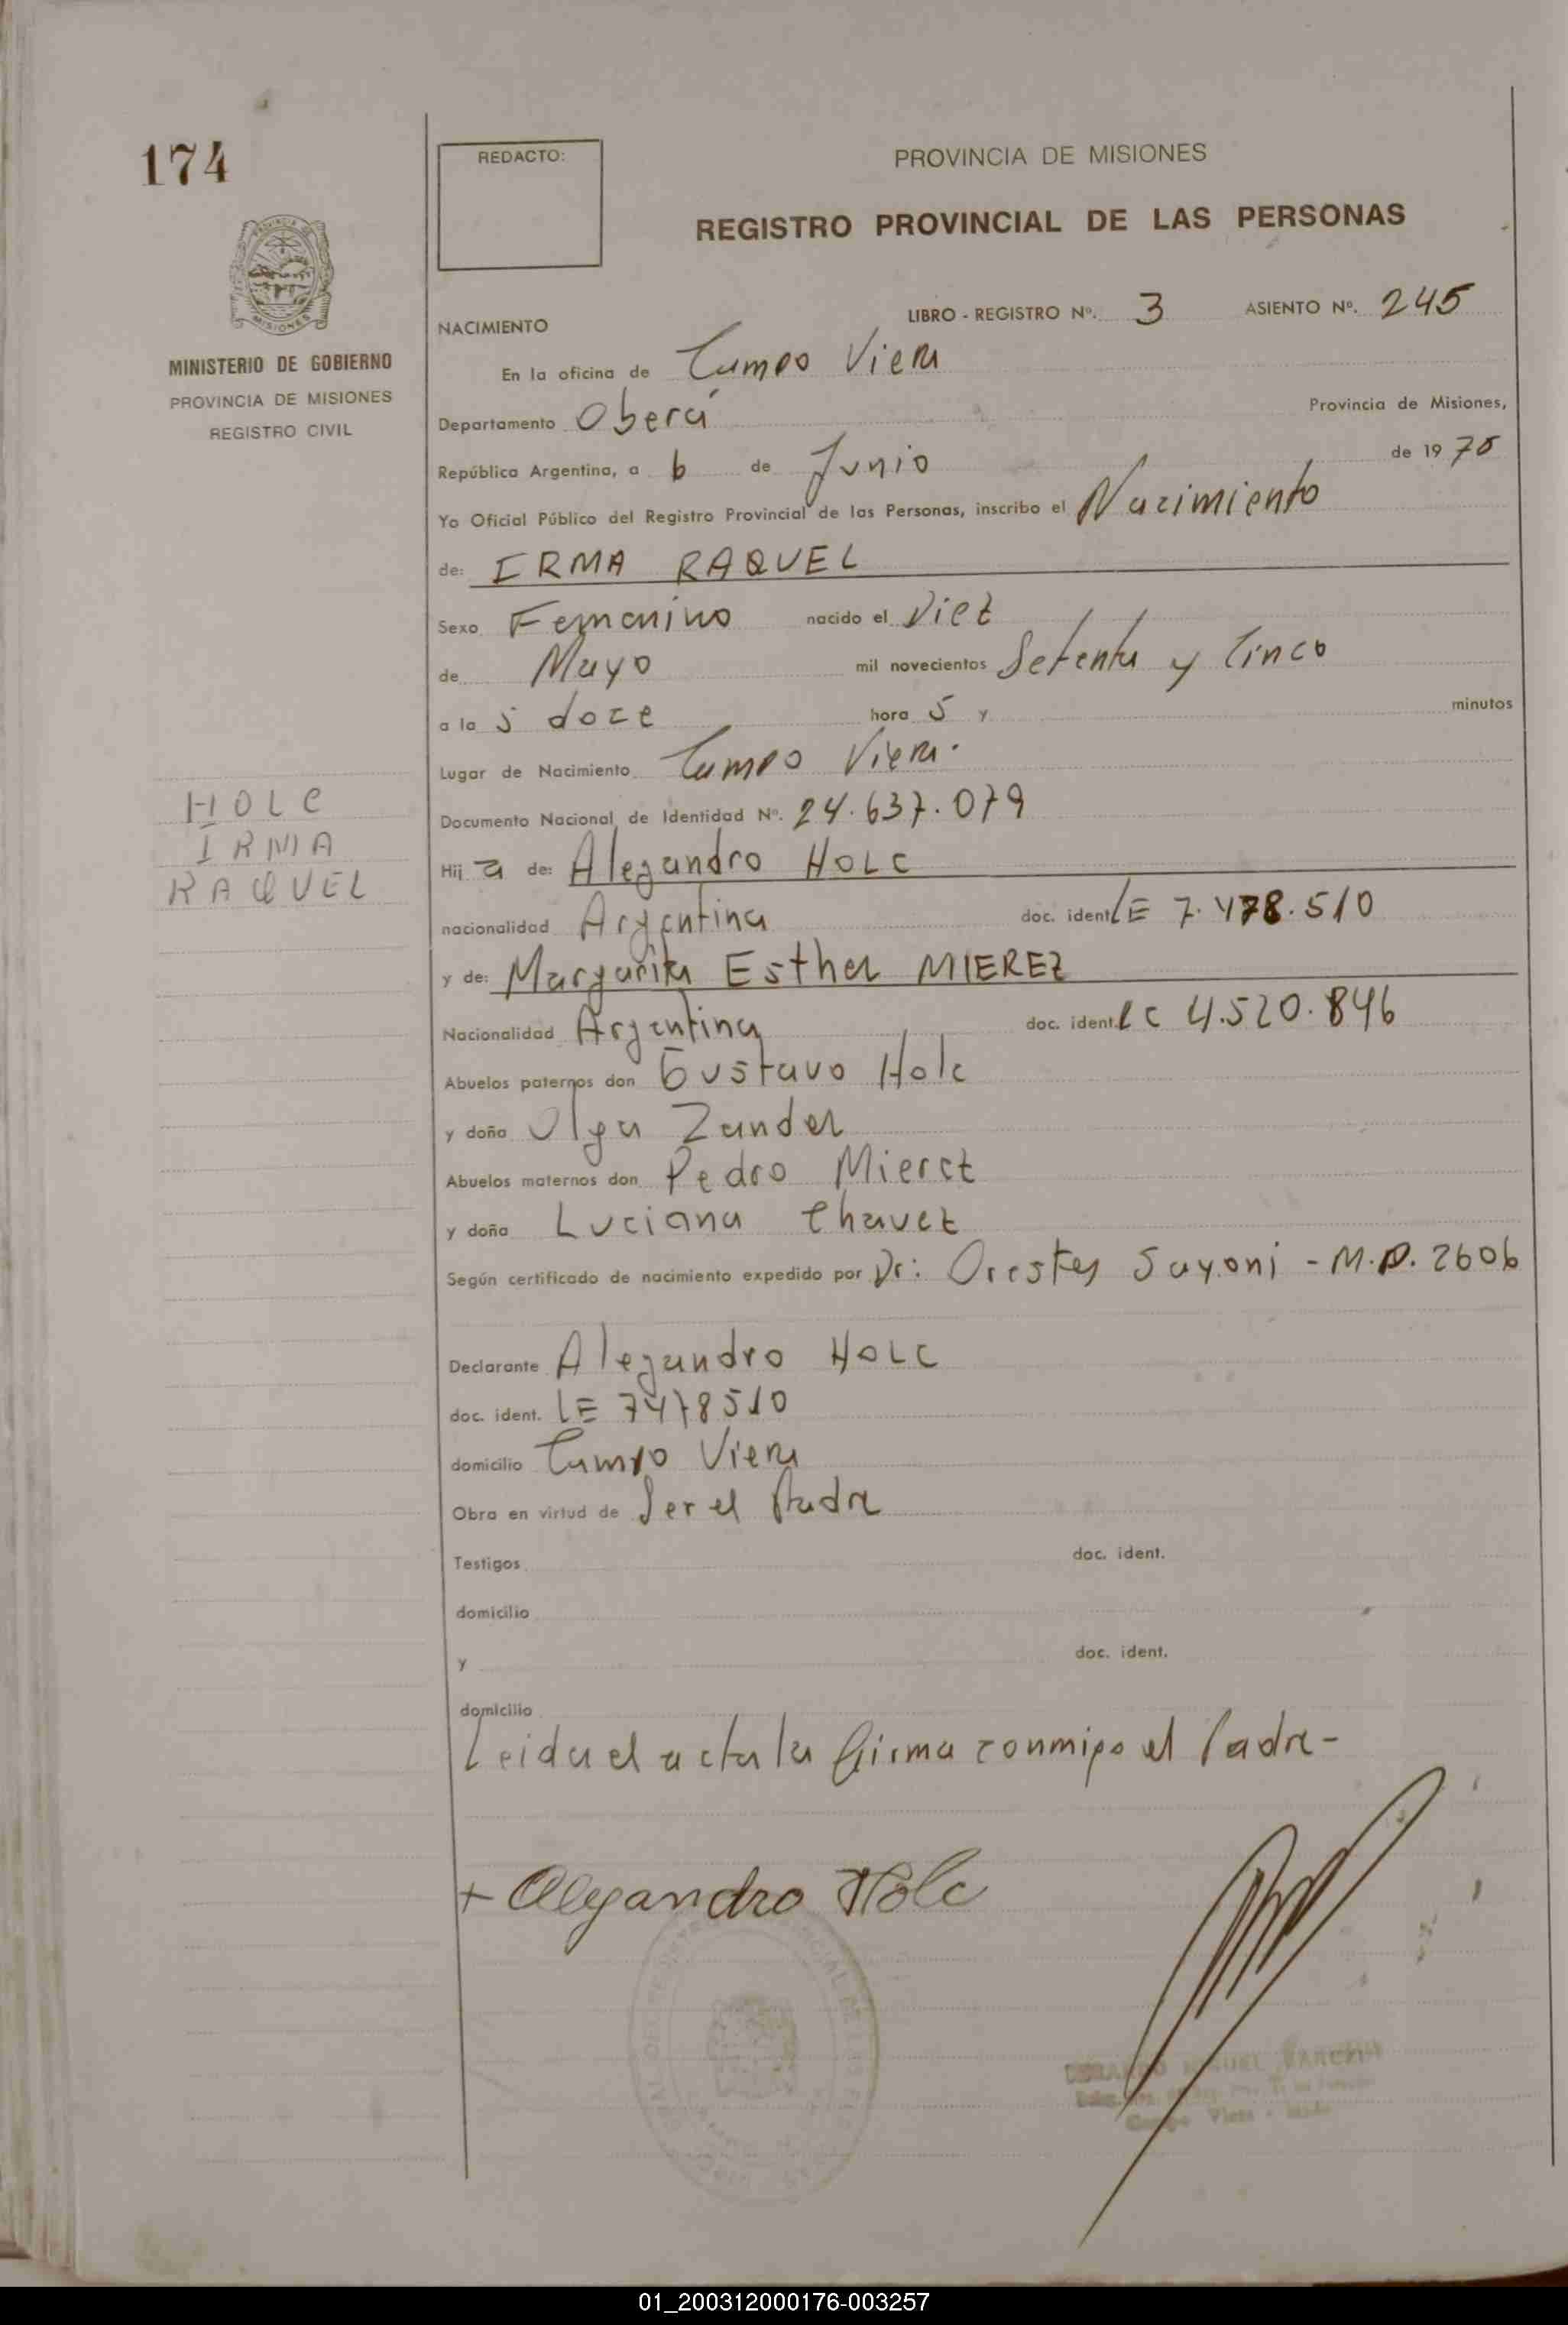 174
REDACTO:
PROVINCIA DE MISIONES
REGISTRO PROVINCIAL DE LAS PERSONAS
MISIONES
MINISTERIO DE GOBIERNO
PROVINCIA DE MISIONES
REGISTRO CIVIL
NACIMIENTO
LIBRO - REGISTRO Nº. 3 ASIENTO Nº. 245
En la oficina de Campo Viera
Departamento Oberá Provincia de Misiones,
República Argentina, a 6 de Junio de 1975
Yo Oficial Público del Registro Provincial de las Personas, inscribo el Nacimiento
de: IRMA RAQUEL
Sexo Femenino nacido el Diez
de Mayo mil novecientos Setenta y Cinco
a la s doce hora s y minutos
Lugar de Nacimiento Campo Viera.
HOLC
IRMA
RAQUEL
Documento Nacional de Identidad Nº. 24.637.079
Hij a de: Alejandro HOLC
nacionalidad Argentina doc. ident LE 7.478.510
y de: Margarita Esther MIEREZ
Nacionalidad Argentina doc. ident. LC 4.520.846
Abuelos paternos don Gustavo Holc
y doña Olga Zander
Abuelos maternos don Pedro Mierez
y doña Luciana Chavez
Según certificado de nacimiento expedido por Dr: Orestes Sayoni - M.P. 2606
Declarante Alejandro HOLC
doc. ident. LE 7478510
domicilio Campo Viera
Obra en virtud de Ser el Padre
Testigos doc. ident.
domicilio
y doc. ident.
domicilio
Leida el acta la firma conmigo el Padre-
+ Alejandro Holc
MIGUEL
Campo Viera
01_200312000176-003257